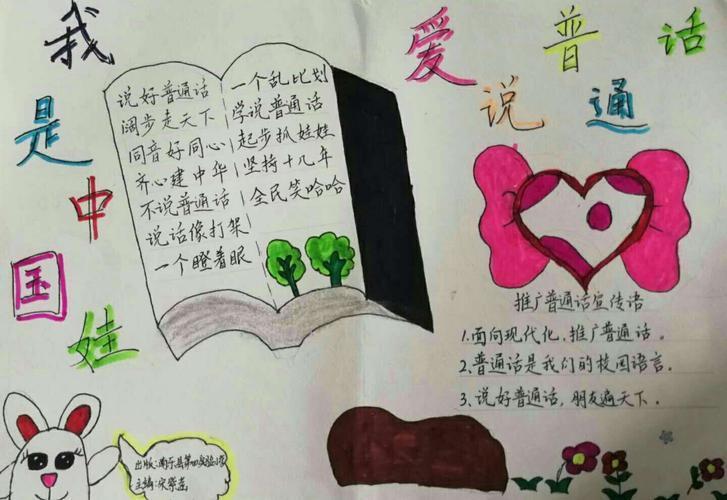 我是中国娃
爱说普通话
说好普通话
阔步走天下
同音好同心
齐心建中华
不说普通话
说话像打架
一个瞪着眼
一个乱比划
学说普通话
起步抓娃娃
坚持十几年
全民笑哈哈
推广普通话宣传语
1.面向现代化,推广普通话。
2、普通话是我们的校园语言。
3、说好普通话,朋友遍天下。
出版:南乐县第四实验小学
主编:宋紫蕊